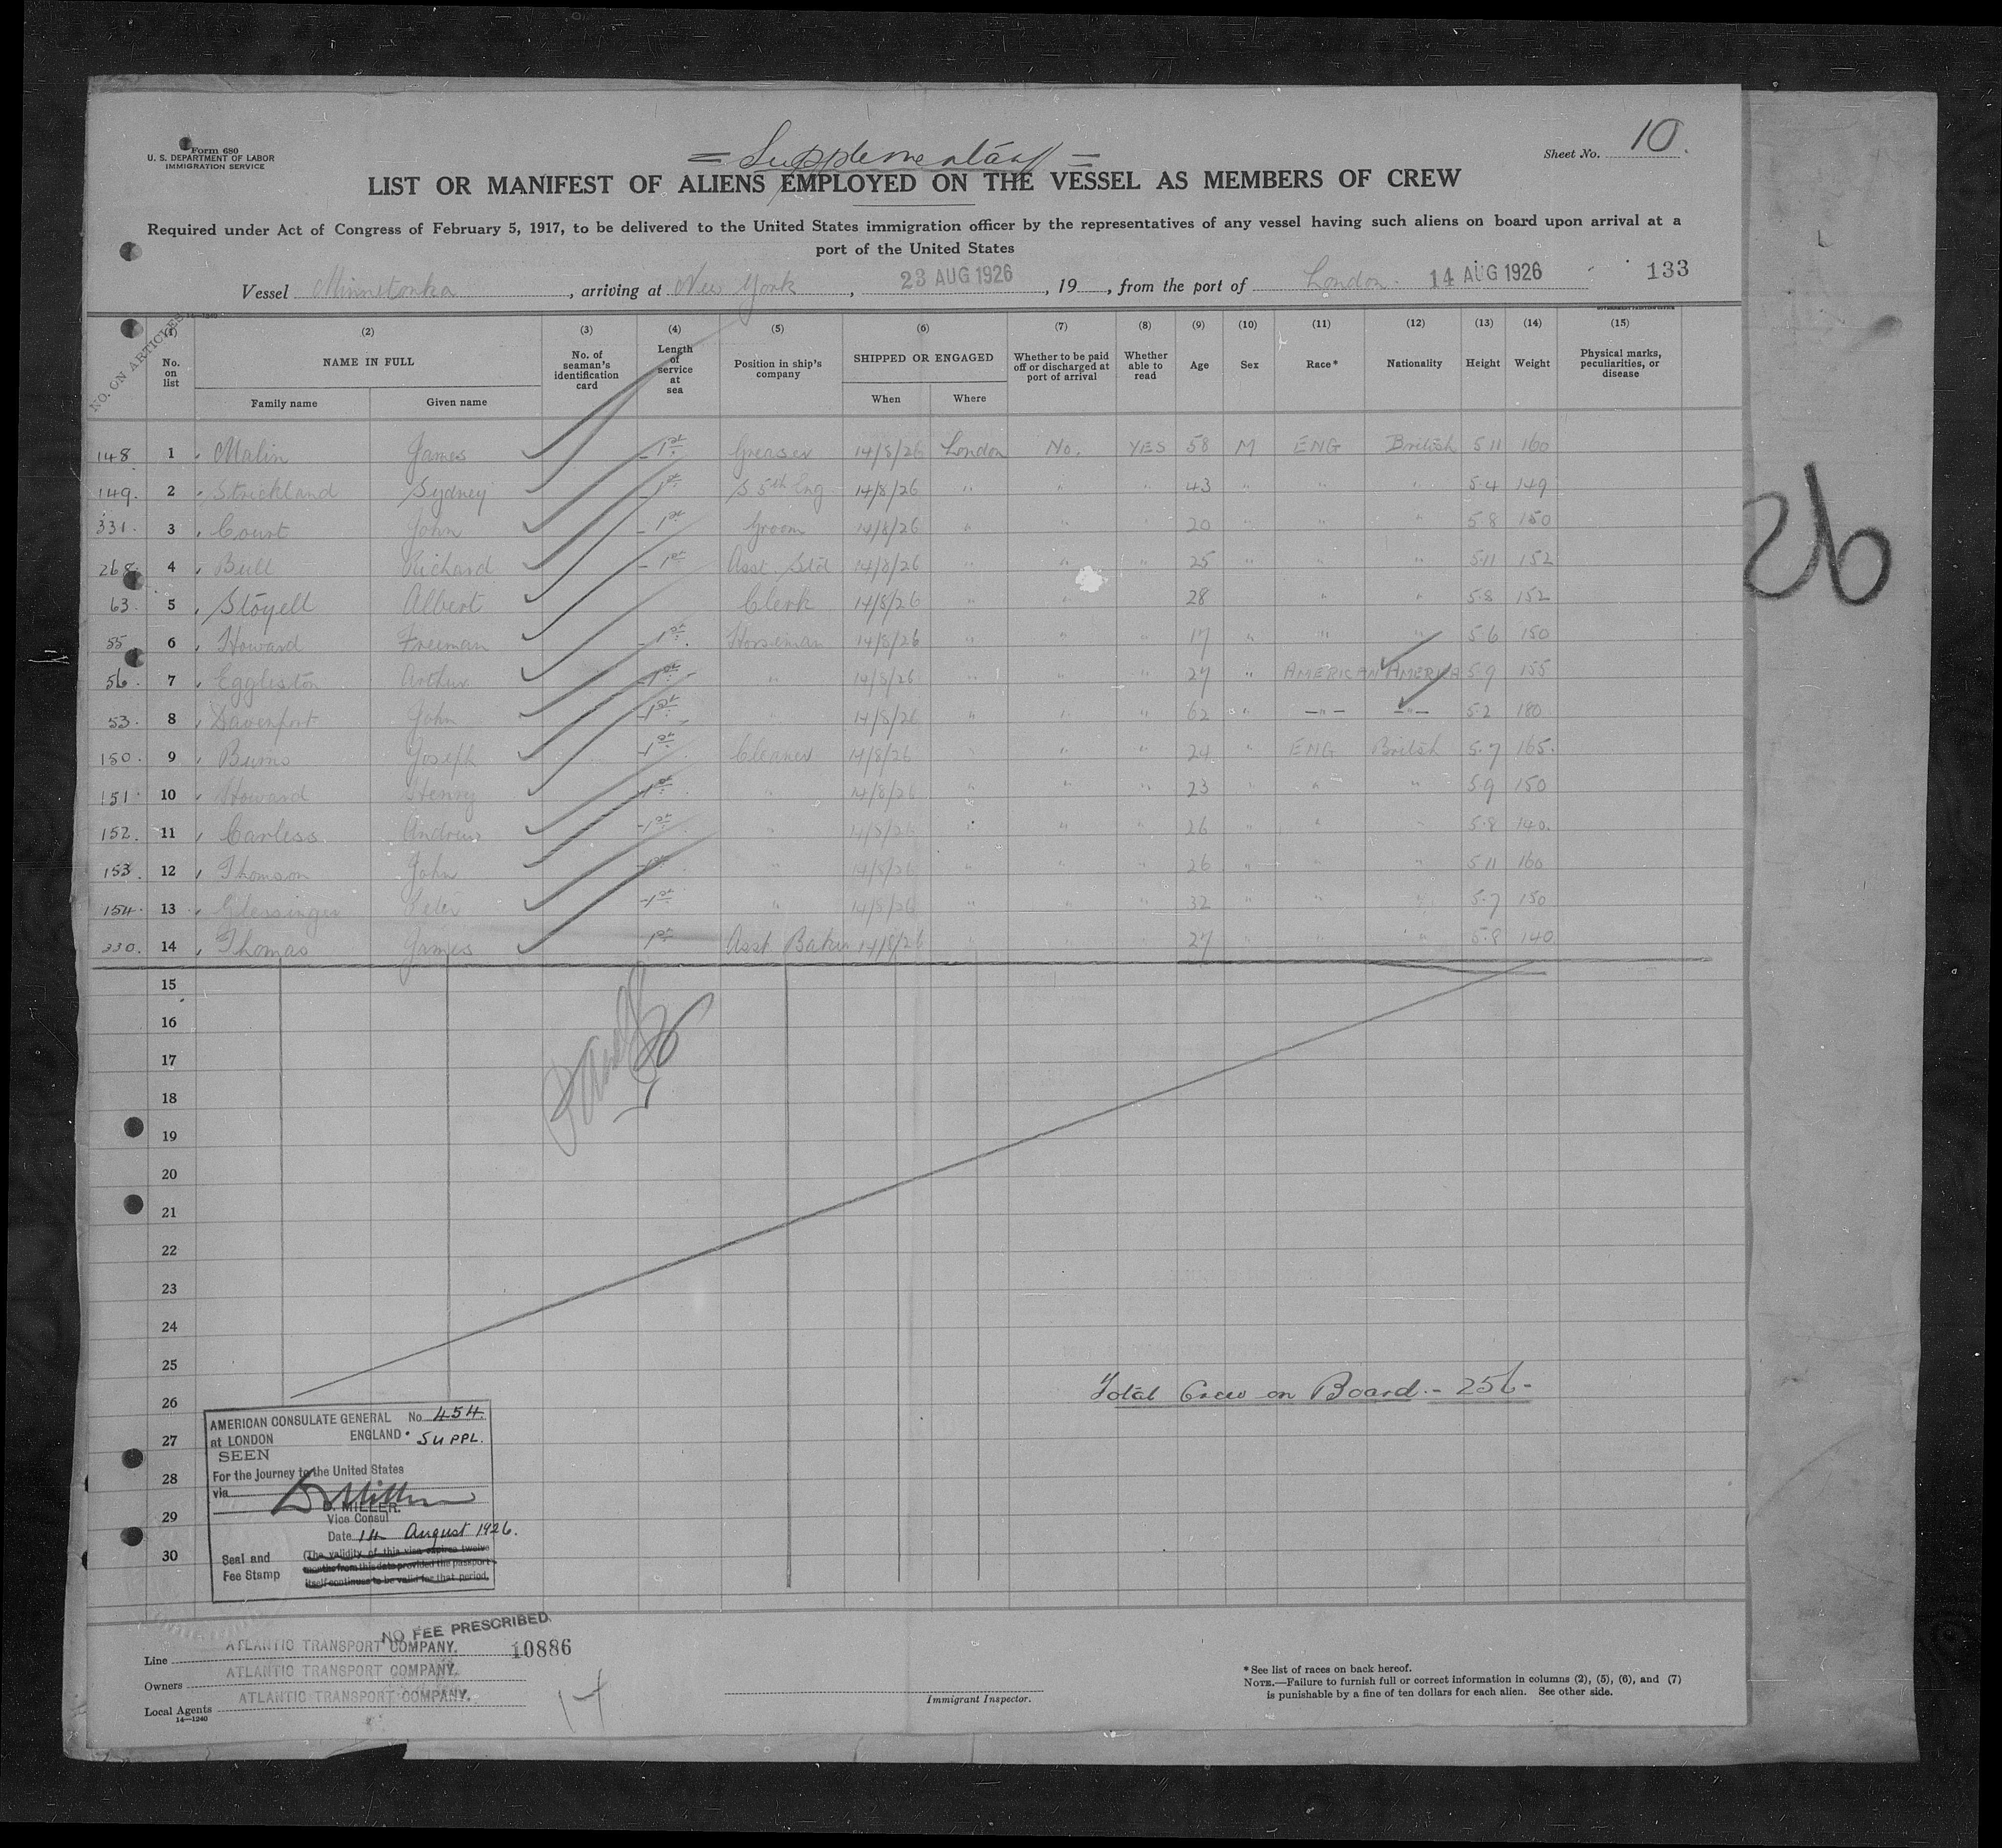 Form 680
U. S. DEPARTMENT OF LABOR
IMMIGRATION SERVICE
= Supplementary =
Sheet No. 10.
LIST OR MANIFEST OF ALIENS EMPLOYED ON THE VESSEL AS MEMBERS OF CREW
Required under Act of Congress of February 5, 1917, to be delivered to the United States immigration officer by the representatives of any vessel having such aliens on board upon arrival at a
port of the United States
Vessel Minnetonka, arriving at New York, 23 AUG 1926, 19, from the port of London. 14 AUG 1926 133
NO. ON ARTICLES
(1) (2) (3) (4) (5) (6) (7) (8) (9) (10) (11) (12) (13) (14) (15)
No. on list NAME IN FULL Family name Given name No. of seaman's identification card Length of service at sea Position in ship's company SHIPPED OR ENGAGED When Where Whether to be paid off or discharged at port of arrival Whether able to read Age Sex Race* Nationality Height Weight Physical marks, peculiarities, or disease
148 1 Malin James 1st Greaser 14/8/26 London No. YES 58 M ENG British 5 11 160
149. 2 Strickland Sydney 1st S 5th Eng 14/8/26 " " " 43 " " " 5.4 149
331. 3 Court John 1st Groom 14/8/26 " " " 20 " " " 5 8 150
268. 4 Bull Richard 1st Asst. Std 14/8/26 " " " 25 " " " 5.11 152
63. 5 Stoyell Albert Clerk 14/8/26 " " 28 " " 5.8 152
55 6 Howard Freeman 1st Horseman 14/8/26 " " " 17 " " " 5 6 150
56. 7 Eggleston Arthur 1st " 14/8/26 " " " 27 " AMERICAN AMERICA 5 9 155
53. 8 Davenport John 1st " 14/8/26 " " " 62 " " " 5.2 180
150. 9 Burns Joseph 1st Cleaner 14/8/26 " " " 24 " ENG British 5.7 165.
151. 10 Howard Henry 1st " 14/8/26 " " " 23 " " " 5 9 150
152. 11 Carless Andrew 1st " 14/8/26 " " " 26 " " " 5.8 140.
153. 12 Thomson John 1st " 14/8/26 " " " 26 " " " 5 11 160
154. 13 Peter 1st " 14/8/26 " " " 32 " " " 5.7 150
330. 14 Thomas James 1st Asst Baker 14/8/26 " " " 27 " " " 5.8 140
15
16
17
18
19
20
21
22
23
24
25
26
27
28
29
30
Total Crew on Board. - 256 -
26
AMERICAN CONSULATE GENERAL No 454.
at LONDON ENGLAND. SUPPL.
SEEN
For the journey to the United States
via
D. MILLER.
Vice Consul
Date 14 August 1926.
Seal and
Fee Stamp
(The validity of this visa expires twelve
months from this date provided the passport
itself continues to be valid for that period.
NO FEE PRESCRIBED.
Line ATLANTIC TRANSPORT COMPANY. 10886
Owners ATLANTIC TRANSPORT COMPANY.
Local Agents ATLANTIC TRANSPORT COMPANY.
14—1240
14
Immigrant Inspector.
*See list of races on back hereof.
NOTE.—Failure to furnish full or correct information in columns (2), (5), (6), and (7)
is punishable by a fine of ten dollars for each alien. See other side.